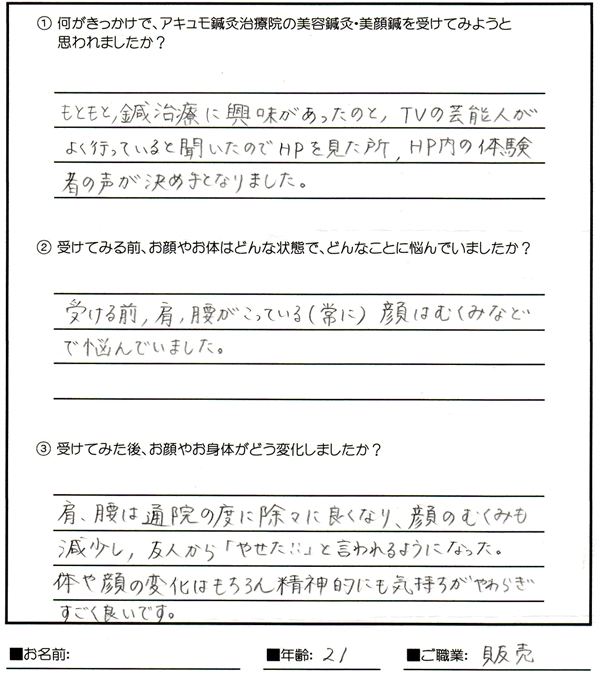 ① 何がきっかけで、アキュモ鍼灸治療院の美容鍼灸・美顔鍼を受けてみようと
思われましたか？
もともと,鍼治療に興味があったのと,TVの芸能人が
よく行っていると聞いたのでHPを見た所,HP内の体験
者の声が決め手となりました。
② 受けてみる前、お顔やお体はどんな状態で、どんなことに悩んでいましたか？
受ける前,肩,腰がこっている(常に) 顔はむくみなど
で悩んでいました。
③ 受けてみた後、お顔やお身体がどう変化しましたか？
肩、腰は通院の度に除々に良くなり、顔のむくみも
減少し,友人から「やせた!!」と言われるようになった。
体や顔の変化はもちろん精神的にも気持ちがやわらぎ
すごく良いです。
■お名前: ■年齢: 21 ■ご職業: 販売